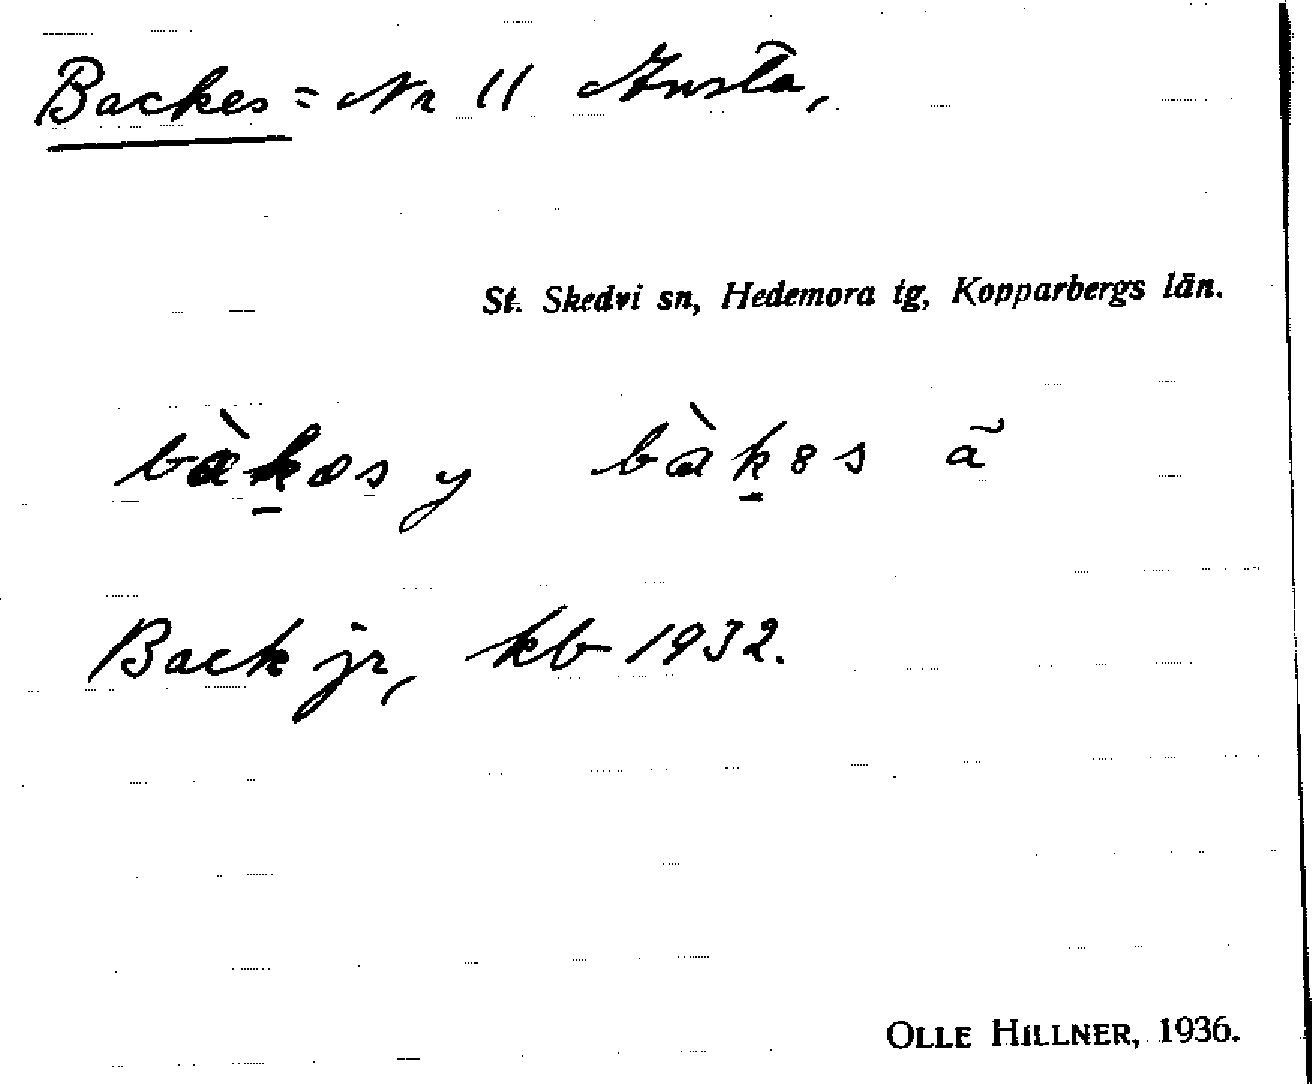 Backes = Nr 11 Ansta,
St. Skedvi sn, Hedemora tg, Kopparbergs län.
bàk̠əs y bàk̠əs ã
Back jr, kb 1932.
OLLE HILLNER, 1936.